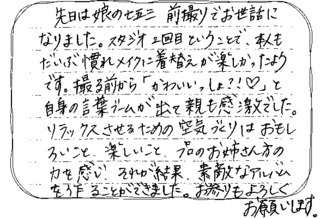 先日は娘の七五三 前撮りでお世話に
なりました。スタジオ2回目ということで、本人も
だいぶ慣れメイクに着替えが楽しかったよう
です。撮る前から「かわいいっしょ?!♡」と
自身の言葉ブームが出て親も感激でした。
リラックスさせるための空気づくりはおもし
ろいこと、楽しいこと、プロのお姉さん方の
力を感じ それが結果、素敵なアルバム
をうたることができました。お参りもよろしく
お願いします。